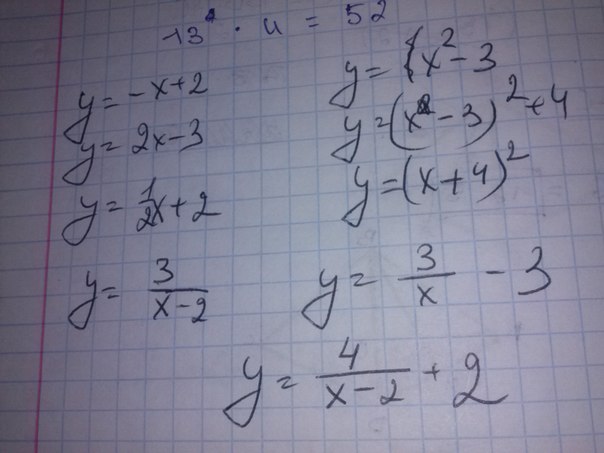 13 · 4 = 52
y = -x+2
y = 2x-3
y = 1/2x+2
y = x²-3
y = (x-3)²+4
y = (x+4)²
y = 3/(x-2)
y = 3/x - 3
y = 4/(x-2) + 2